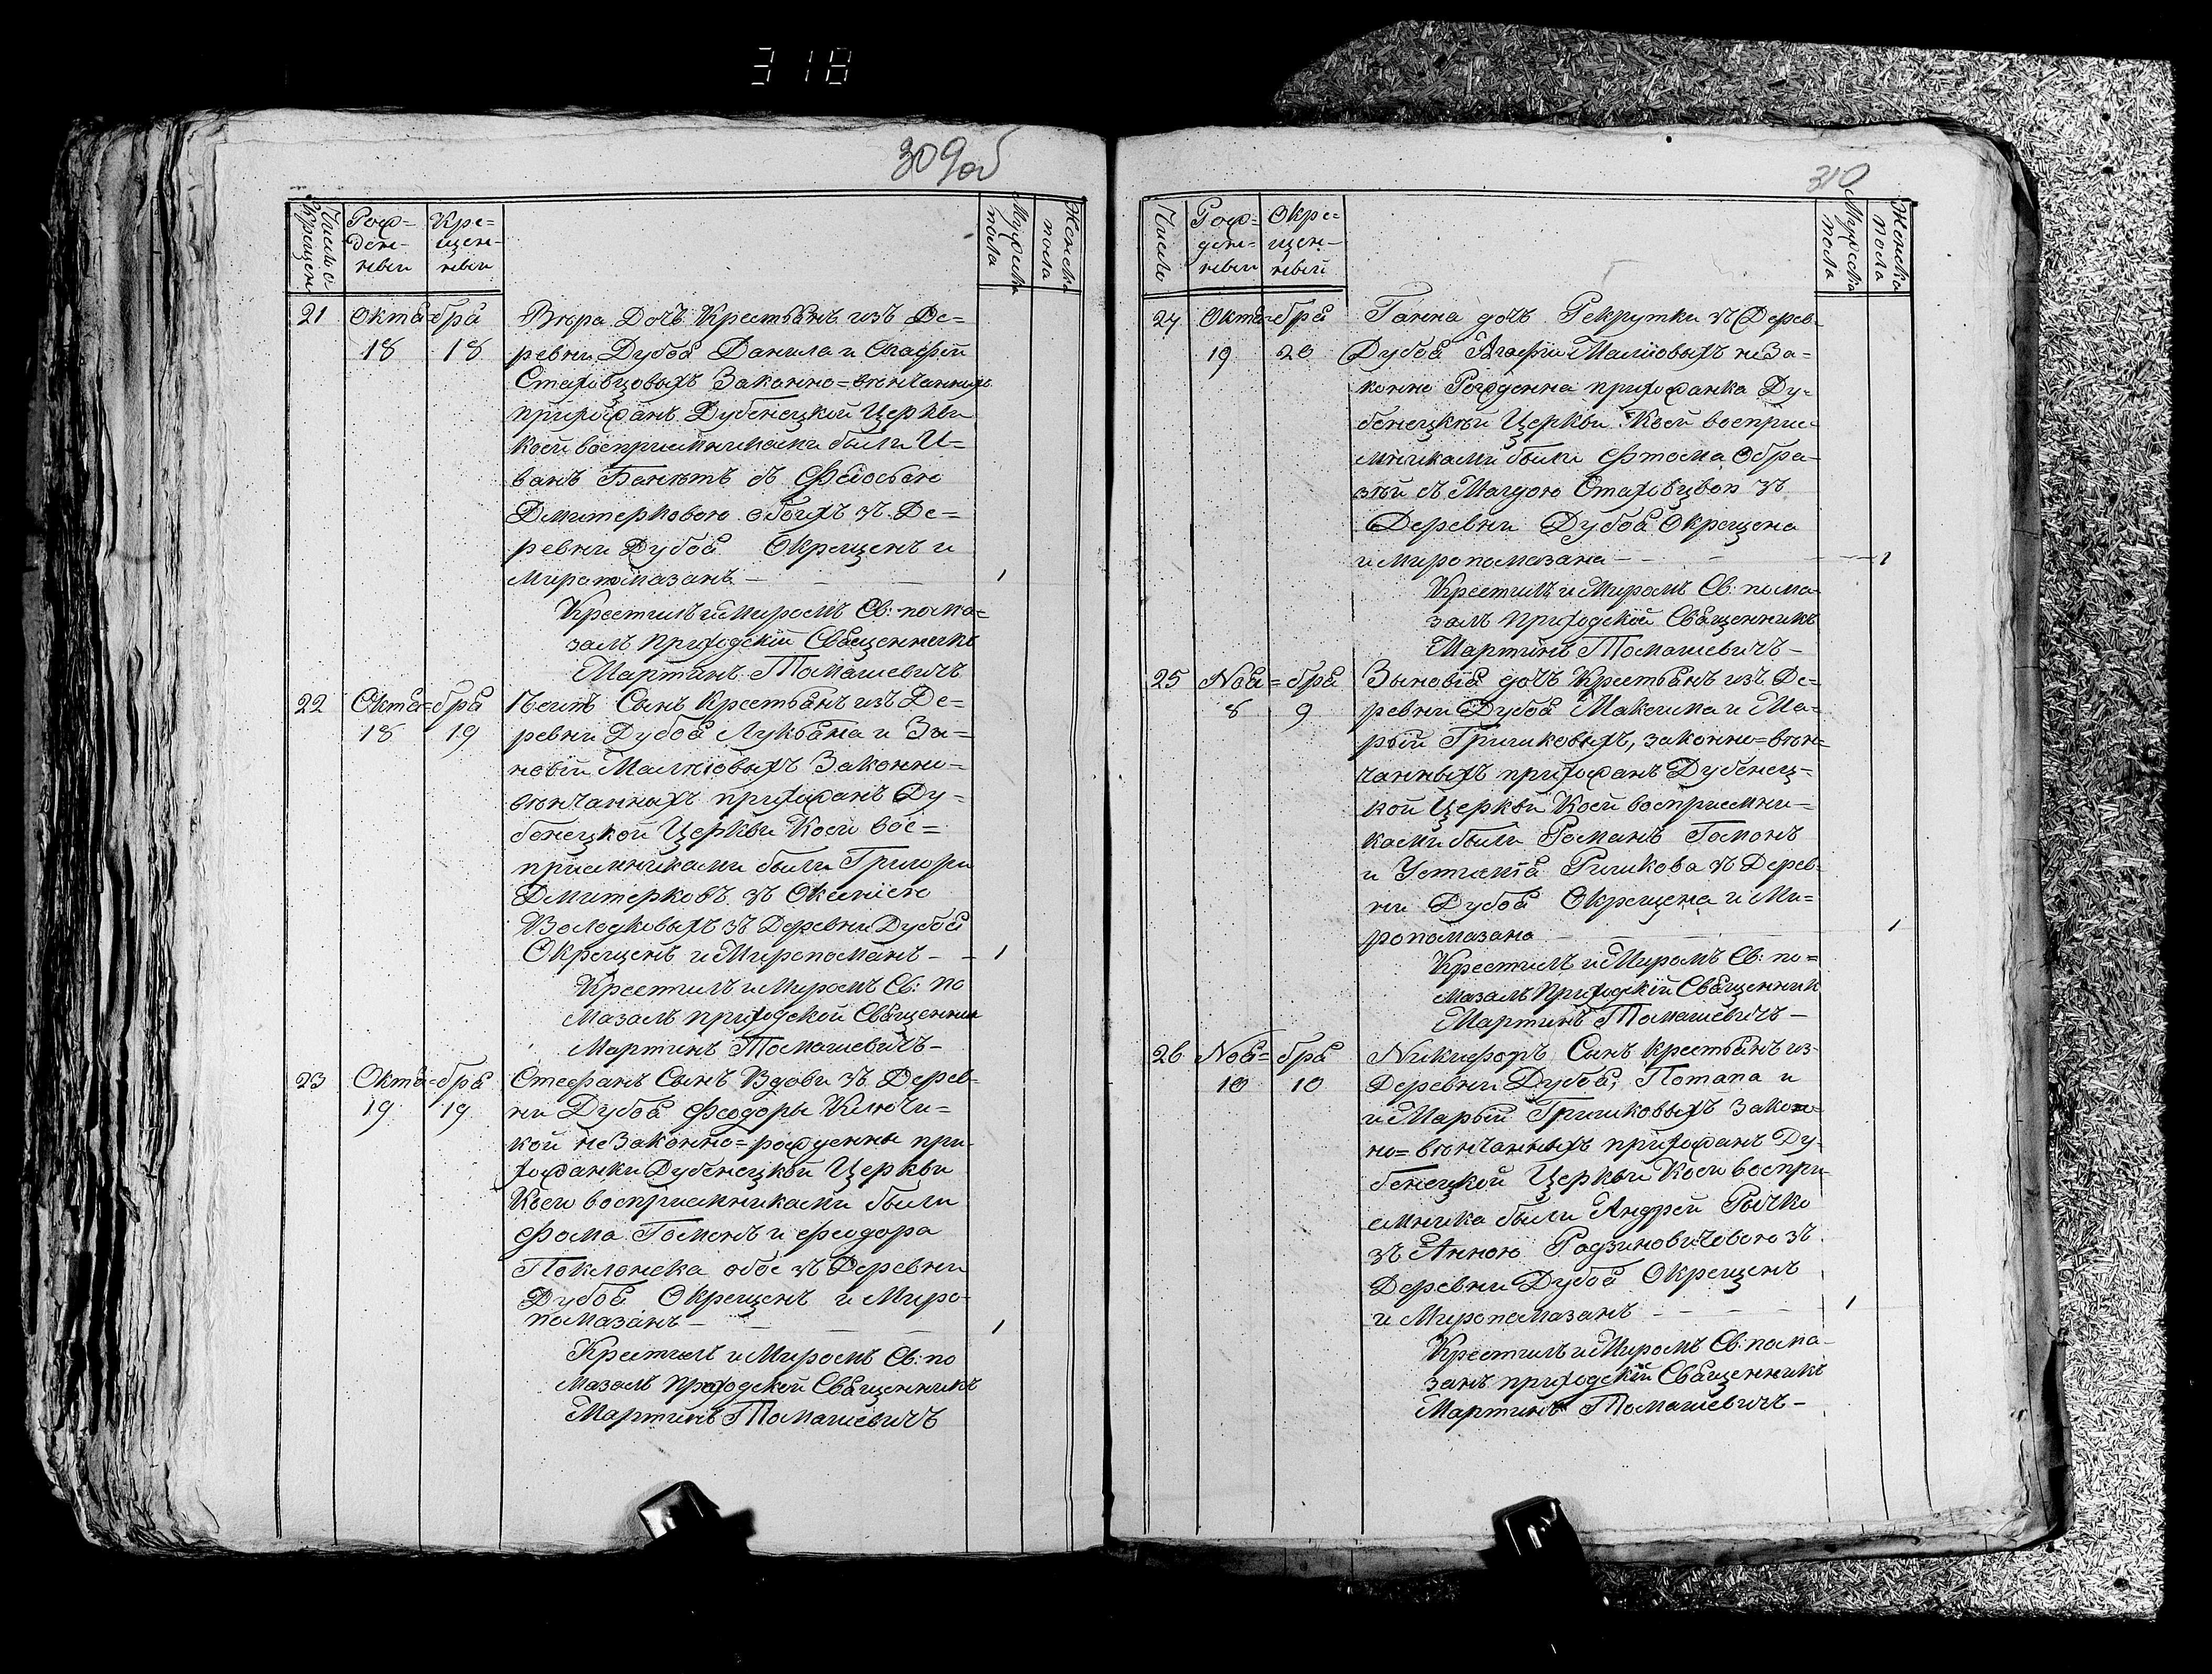 318
309об
Число крещен
Рож=
ден=
ный
Кре=
щен=
ный
Мужеска
пола
Женска
пола
21 Октя=бря Вѣра Дочь Крестьянъ изъ Де=
18 18 ревни Дубоя Данила и Агафіи
Стаховцовыхъ Законно=вѣнчанныхъ
прихожанъ Дубенецкой Церкви
коей восприемниками были И=
ванъ съ Феіосьею
Дмитерковою обоихъ зъ Де=
ревни Дубоя Окрещенъ и
Миропомазанъ — — — 1
Крестилъ и Миромъ Св: пома=
залъ приходскій Священникъ
Мартинъ Томашевичъ
22 Октя=бря Сынъ Крестьянъ изъ Де=
18 19 ревни Дубоя Лукьяна и Зи=
новіи Малиовыхъ Законно=
вѣнчанныхъ прихожанъ Ду=
бенецкой Церкви Коей вос=
приемниками были Григори
Дмитерковъ зъ Оксиніею
Володковыхъ зъ Деревни Дубоя
Окрещенъ и Миропоманъ — — 1
Крестилъ и Миромъ Св: по
мазалъ приходской Священник
Мартинъ Томашевичъ —
23 Октя=бря Стефанъ Сынъ Вдови зъ Дерев=
19 19 ни Дубоя Феодоры Ключи=
кой незаконно=рожденны при=
хожанки Дубенецкой Церкви
Коей восприемниками были
Фома Гомонъ и Феодора
Поклонска обое зъ Деревни
Дубоя Окрещенъ и Миро=
помазанъ — — — — 1
Крестилъ и Миромъ Св: по
мазалъ приходской Священникъ
Мартинъ Томашевичъ
310
Число
Рож=
ден=
ный
Окре=
щен=
ный
Мужеска
пола
Женска
пола
24 Октя=бря Ганна дочь Рекрутки зъ Дерев=
19 20 Дубоя Агафіи Малиовыхъ неза=
конно Рожденна прихожанка Ду=
бенецкѣй Церкви Коей восприе=
мниками были Фтома Обра=
зѣй съ Магдою Стаховцвои зъ
Деревни Дубоя Окрещена
и миропомазана — — — 1
Крестилъ и Миромъ Св: пома
залъ приходской Священникъ
Мартинъ Томашевичъ —
25 Ноя=бря Зыновія дочь Крестьянъ изъ Де=
8 9 ревни Дубоя Максима и Ма=
рьіи Гришковыхъ, законно=вѣн=
чанныхъ прихожанъ Дубенец=
кой Церкви Коей восприемни=
ками были Романъ Гомонъ
и Устимія Ришкова зъ Дерев=
ни Дубоя Окрещена и Ми=
ропомазана — — — 1
Крестилъ и Миромъ Св: по=
мазалъ приходскій Священник
Мартинъ Томашевичъ —
26 Ноя=бря Никифоръ Сынъ крестьянъ из
10 10 Деревни Дубоя, Потапа и
и Марьіи Гришковыхъ Закон=
но=вѣнчанныхъ прихожанъ Ду=
бенецкой Церкви Коей воспри
емника были Андрей Рычко
зъ Анною Радзиновичовою зъ
Деревни Дубоя Окрещенъ
и Миропомазанъ — — — 1
Крестилъ и Миромъ Св: пома=
занъ приходскій Священникъ
Мартинъ Томашевичъ —